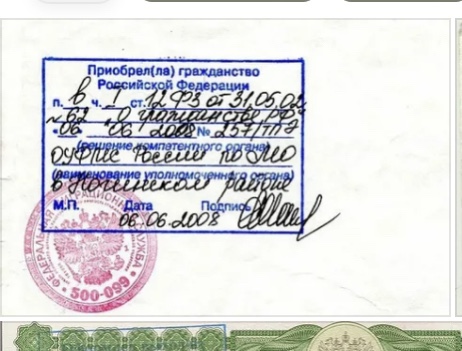 Приобрел(ла) гражданство
Российской Федерации
п. в ч. 1 ст. 12 ФЗ от 31.05.02
№ 62 О гражданстве РФ"
"06" "06" 2008 № 257/ТПЭ
(решение компетентного органа)
ОУФМС России по МО
(наименование уполномоченного органа)
в Ногинском районе
М.П. Дата Подпись
06.06.2008
ФЕДЕРАЛЬНАЯ МИГРАЦИОННАЯ СЛУЖБА
500-099